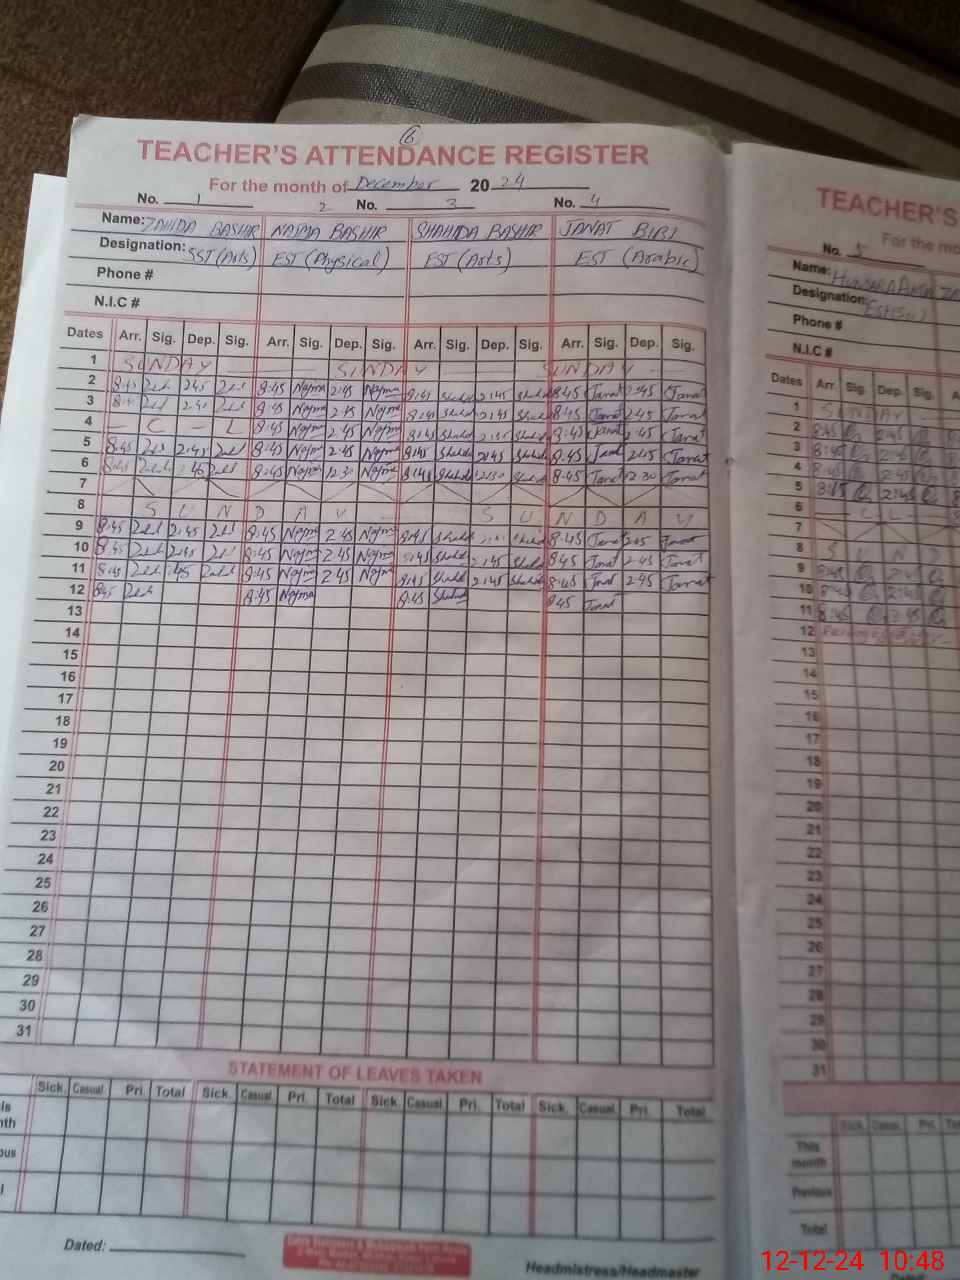 6
TEACHER'S ATTENDANCE REGISTER
For the month of December 20 24
No. 1 2 No. 3 No. 4
Name: ZAHIDA BASHIR NAJMA BASHIR SHAHIDA BASHIR JANAT BIBI
Designation: SST (Arts) EST (Physical) EST (Arts) EST (Arabic)
Phone #
N.I.C #
Dates Arr. Sig. Dep. Sig. Arr. Sig. Dep. Sig. Arr. Sig. Dep. Sig. Arr. Sig. Dep. Sig.
1 SUNDAY SUNDAY SUNDAY
2 8:45 2:45 8:45 Najma 2:45 Najma 8:45 Shahida 2:45 Shahida 8:45 Janat 2:45 Janat
3 8:45 2:45 8:45 Najma 2:45 Najma 8:45 Shahida 2:45 Shahida 8:45 Janat 2:45 Janat
4 - C - L 8:45 Najma 2:45 Najma 8:45 Shahida 2:45 Shahida 8:45 Janat 2:45 Janat
5 8:45 2:45 8:45 Najma 2:45 Najma 8:45 Shahida 2:45 Shahida 8:45 Janat 2:45 Janat
6 8:45 8:45 Najma 12:30 Najma 8:45 Shahida 12:30 Shahida 8:45 Janat 12:30 Janat
7
8 S U N D A Y S U N D A Y
9 8:45 2:45 8:45 Najma 2:45 Najma 8:45 Shahida Shahida 8:45 Janat 2:45 Janat
10 8:45 2:45 8:45 Najma 2:45 Najma 8:45 Shahida 2:45 Shahida 8:45 Janat 2:45 Janat
11 8:45 2:45 8:45 Najma 2:45 Najma 8:45 Shahida 2:45 Shahida 8:45 Janat 2:45 Janat
12 8:45 8:45 Najma 8:45 Shahida 8:45 Janat
13
14
15
16
17
18
19
20
21
22
23
24
25
26
27
28
29
30
31
STATEMENT OF LEAVES TAKEN
Sick. Casual. Pri. Total Sick. Casual. Pri. Total Sick. Casual. Pri. Total Sick. Casual. Pri. Total
Dated:
Headmistress/Headmaster
TEACHER'S
For the mo
No. 5
Name:
Designation:
Phone #
N.I.C #
Dates Arr. Sig. Dep. Sig.
1 SUNDAY
2 8:45 2:45
3 8:45 2:45
4 8:45 2:45
5 8:45 2:45
6 - C L
7
8 S U N
9 8:45 2:45
10 8:45 2:45
11 8:45 2:45
12
13
14
15
16
17
18
19
20
21
22
23
24
25
26
27
28
29
30
31
Sick. Casual. Pri.
This month
Previous
Total
12-12-24 10:48